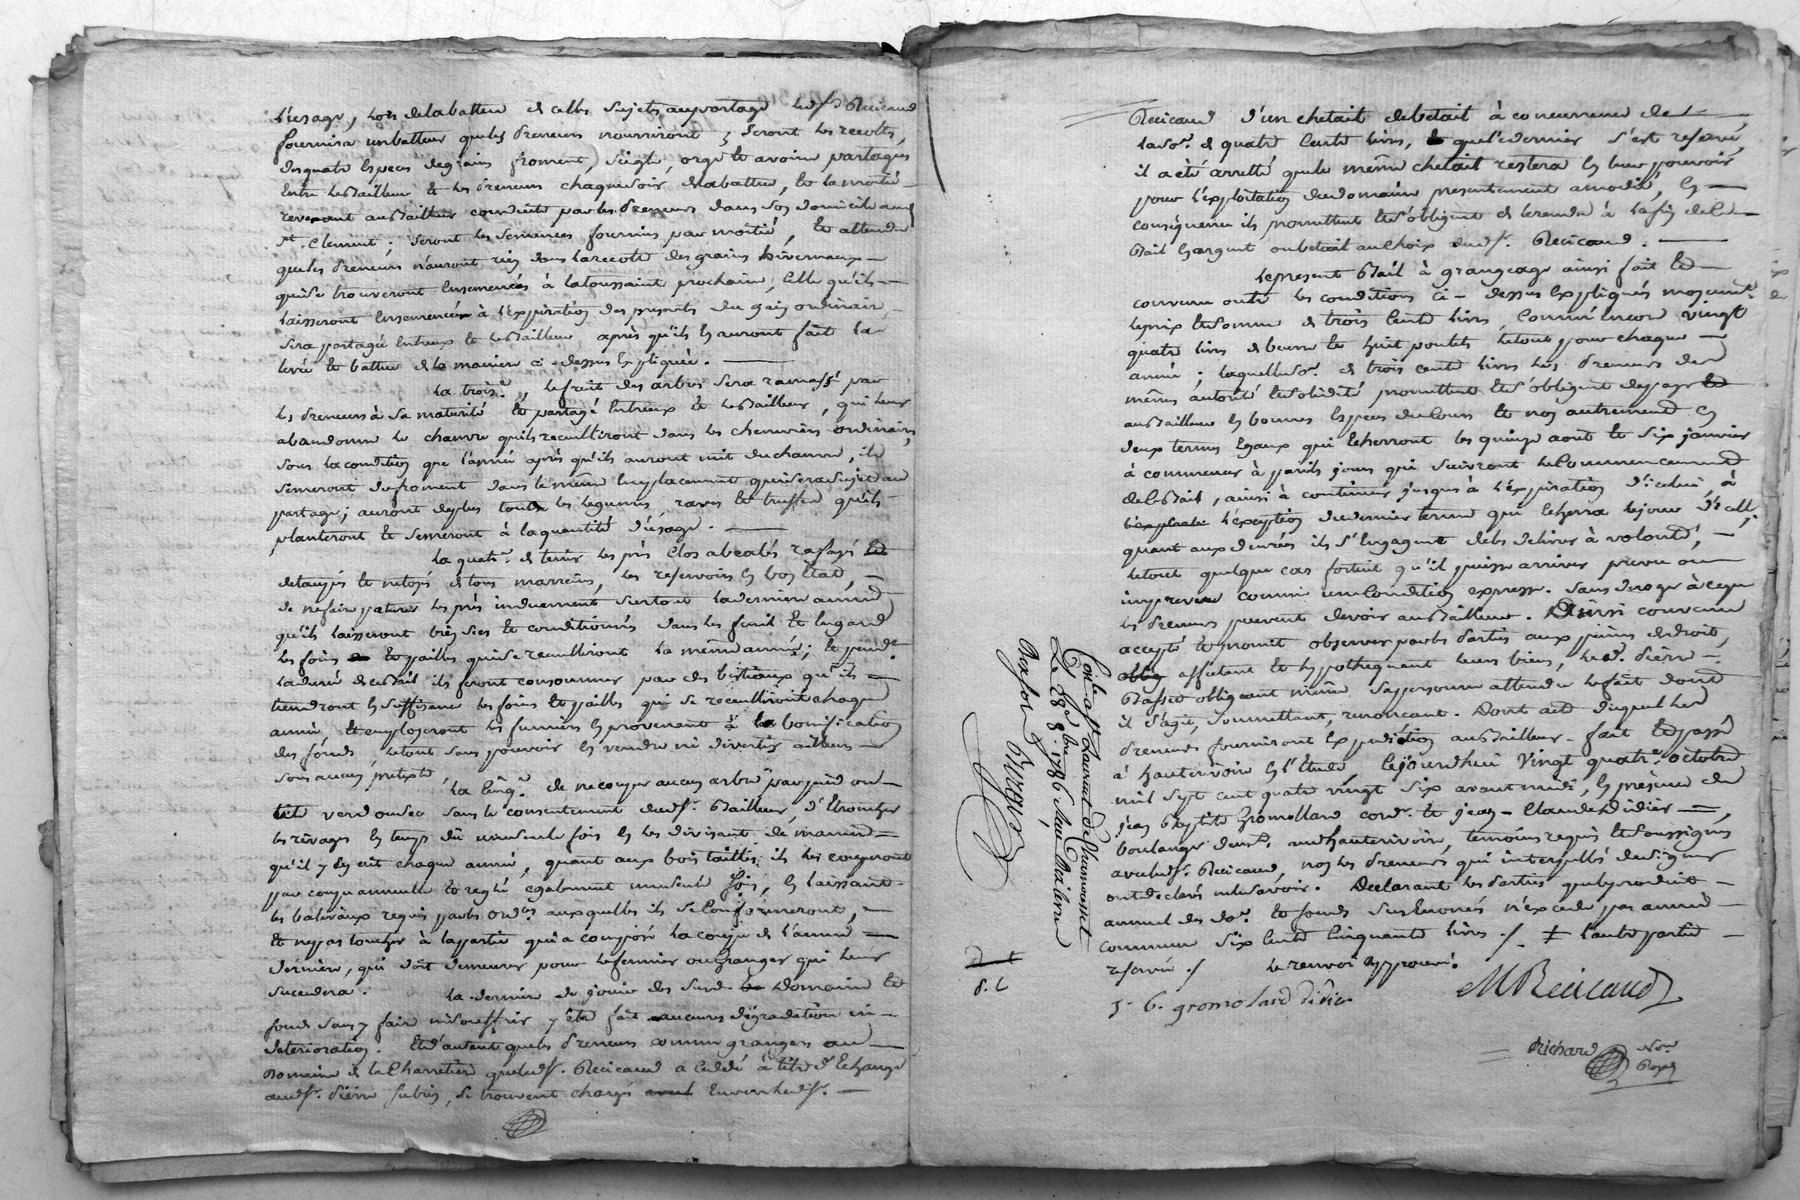 l'usage, hors de la batture de celles sujetes au partage led. sr. Recicaud
fournira un batteur que les preneurs nourriront; seront les recoltes,
des quatre especes de grains froment, seigle, orge et avoine, partagées
entre le Bailleur et les preneurs chaque soir de la battue, et la moitié
revenant au Bailleur conduite par les preneurs dans son domicile aud.
st. Clement; seront les semences fournies par moitié, et attendu
que les preneurs n'auront rien dans la recolte des grains hivernaux
qui se trouveront ensemencés à la toussaint prochaine, celle qu'ils
laisseront ensemencée à l'expiration des presents du gain ordinaire,
sera partagée entreux et le Bailleur après qu'ils en auront fait la
levée et battue de la maniere ci-dessus expliquée.
La trois.e, le fruit des arbres sera ramassé par
les preneurs à sa maturité et partagé entreux et le Bailleur, qui leur
abandonne le chanvre qu'ils recuilliront dans les chenevieres ordinaires,
sous la condition que l'année après qu'ils auront mit du chanvre, ils
sèmeront du froment dans le même emplacement qui sera sujet au
partage; auront de plus touts les legumes, raves et truffes qu'ils
planteront et semeront à la quantité d'usage.
La quatr.e de tenir les prés clos abealés rasass et
detaupés et netoyés de tous marreins, les reservoirs en bon etat,
de ne faire paturer les prés induement surtout la derniere année
qu'ils laisseront bien sies et conditionnés dans les fenil et
les foins et pailles qui se recuilliront la même année; et pend.t
la durée du Bail ils feront consommer par des bestiaux qu'ils
tiendront en suffisance les foins et pailles qui se recuilliront chaque
année, et employeront les fumiers en provenants à la bonification
des fonds, le tout sans pouvoir en vendre ni divertir ailleurs
sous aucun pretexte.
La cinq.e de ne couper aucun arbre par pied ou
tête verd ou sec sans le consentement dud. sr. Bailleur, d'ébrancher
les rivages en temps dû une seule fois en les divisant de maniere
qu'il y en eût chaque année, quant aux bois taillis, ils les couperont
par coupe annuelle et reglée egalement une seule fois, en laissant
les baliveaux requis par les ord.es auxquelles ils se conformeront,
et ne pas toucher à la partie qui a composé la coupe de l'année
dernière, qui doit demeurer pour le fermier ou granger qui leur
succedera.
La derniere de jouir des susd. Domaine et
fonds sans y faire ni souffrir y être fait aucunes dégradation ni
deterioration. Et d'autant que les preneurs comme grangers au
Domaine de la Charretiere que led. sr. Recicaud a cedé à titre d'echange
aud. sr. Pierre Subrin, se trouvent chargés envers led. sr.
Recicaud d'un chetail de betail à concurrence de
la so.e de quatre cents livres, que ce dernier s'est reservé,
il a été arretté que le même chetail restera en leur pouvoir
pour l'exploitation du domaine presentement amodié, en
conséquence ils promettent et s'obligent de le rendre à la fin dud.
Bail en argent ou betail au choix dud. sr. Recicaud.
Le present Bail à grangeage ainsi fait et
convenu outre les conditions ci-dessus expliquées moyennt.
le prix et somme de trois cents livres, comme encore vingt
quatre livres de beurre et huit poulets le tout pour chaque
année; laquelle so.e de trois cents livres les preneurs de
mêmes autorité et solidité promettent et s'obligent de payer
au Bailleur en bonnes especes de cours et non autrement en
deux termes egaux qui echerront les quinze aout et six janvier
à commencer à pareils jours qui suivront le commencement
dud. Bail, ainsi à continuer jusques à l'expiration d'icelui, à
l'exception du dernier terme qui echerra le jour d'icelle;
quant aux denrées ils s'engagent de les delivrer à volonté,
le tout quelque cas fortuit qu'il puisse arriver prevu ou
imprevu comme une condition expresse. Sans deroger à ce que
les preneurs peuvent devoir au Bailleur. Ainsi convenu
accepté et promit observer par les parties aux peines de droit,
affectant et hypothequant leurs biens, led. Pierre
obligeant même sa personne attendu le fait dont
il s'agit, soumettant, renonceant. Dont acte duquel les
preneurs fourniront expedition au Bailleur. fait et passé
à hauterivoire en l'étude le jourdhui vingt quatr.e octobre
mil sept cent quatre vingt six avant midi, en presence de
jean Baptiste Gromollard cord.r et jean-Claude Didier
boulanger dem.ts aud hauterivoire, temoins requis et soussignés
avec led. sr. Recicaud, non les preneurs qui interpellés de signer
ont declaré ne le savoir. Declarant les parties que le produit
annuel des do.e et fonds susénoncés n'excede pas année
commune six cents cinquante livres ./. ‡ l'autre partie
reservée ./. le renvoi approuvé.
J. B. gromolard didier
MRecicaud
Richard No.re
Royal
Cont.lé a St Laurent de Chamousset
Le 8 9.bre 1786